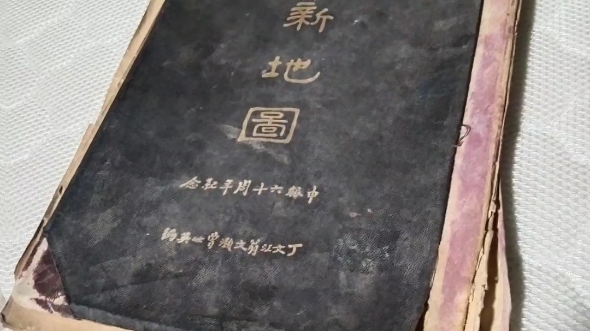 新地圖
申報六十周年紀念
丁文江翁文灝曾世英編